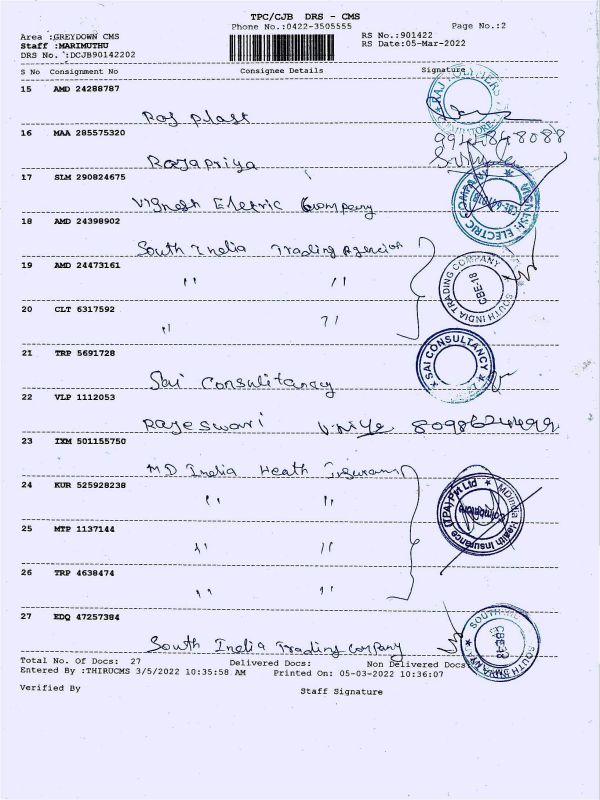 TPC/CJB DRS - CMS
Phone No.:0422-3505555
Page No.:2
Area :GREYDOWN CMS
RS No.:901422
Staff :MARIMUTHU
RS Date:05-Mar-2022
DRS No. :DCJB90142202
S No Consignment No Consignee Details Signature
15 AMD 24288787
Raj Plast
16 MAA 285575320
Rajapriya
17 SLM 290824675
Vignesh Eletric Company
18 AMD 24398902
South India Trading Agencies
19 AMD 24473161
" "
20 CLT 6317592
" "
SOUTH INDIA TRADING COMPANY
CBE-18
21 TRP 5691728
Sai Consulitancy
SAI CONSULTANCY
22 VLP 1112053
Rajeswari 8098624499
23 IXM 501155750
MD India Heath Insurans
24 KUR 525928238
" "
MDIndia Health Insurance (TPA) Pvt Ltd
Coimbatore
25 MTP 1137144
" "
26 TRP 4638474
" "
27 EDQ 47257384
South India Trading Company
CBE-18
Total No. Of Docs: 27 Delivered Docs: Non Delivered Docs
Entered By :THIRUCMS 3/5/2022 10:35:58 AM Printed On: 05-03-2022 10:36:07
Verified By Staff Signature